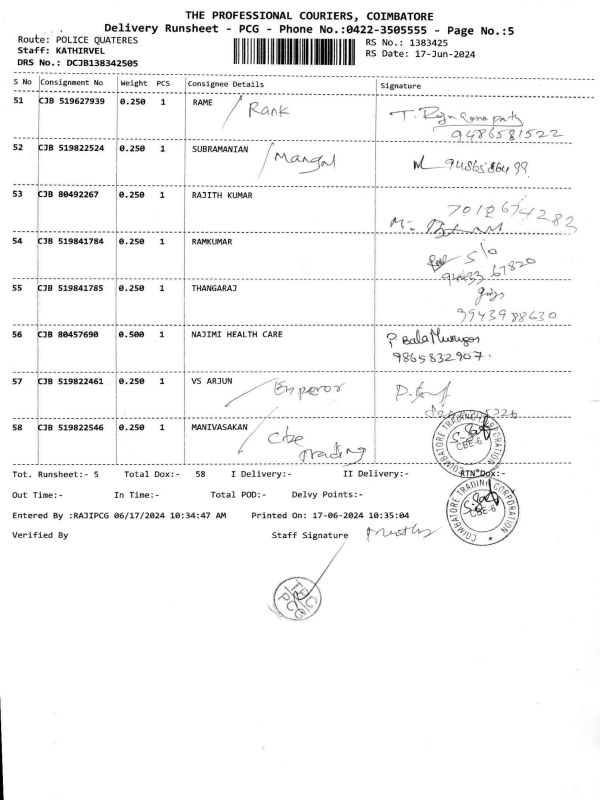 THE PROFESSIONAL COURIERS, COIMBATORE
Delivery Runsheet - PCG - Phone No.:0422-3505555 - Page No.:5
Route: POLICE QUATERES
RS No.: 1383425
Staff: KATHIRVEL
RS Date: 17-Jun-2024
DRS No.: DCJB138342505
S No Consignment No Weight PCS Consignee Details Signature
51 CJB 519627939 0.250 1 RAME Rank
9486581522
52 CJB 519822524 0.250 1 SUBRAMANIAN Mangal
53 CJB 80492267 0.250 1 RAJITH KUMAR
7012674283
54 CJB 519841784 0.250 1 RAMKUMAR
S/o
94433 67820
55 CJB 519841785 0.250 1 THANGARAJ
9943988630
56 CJB 80457690 0.500 1 NAJIMI HEALTH CARE P. BalaMurugan
9865832907.
57 CJB 519822461 0.250 1 VS ARJUN Emperor
58 CJB 519822546 0.250 1 MANIVASAKAN Cbe Trading
COIMBATORE TRADING CORPORATION CBE-6
Tot. Runsheet:- 5 Total Dox:- 58 I Delivery:- II Delivery:- RTN Dox:-
Out Time:- In Time:- Total POD:- Delvy Points:-
COIMBATORE TRADING CORPORATION CBE-6
Entered By :RAJIPCG 06/17/2024 10:34:47 AM Printed On: 17-06-2024 10:35:04
Verified By Staff Signature